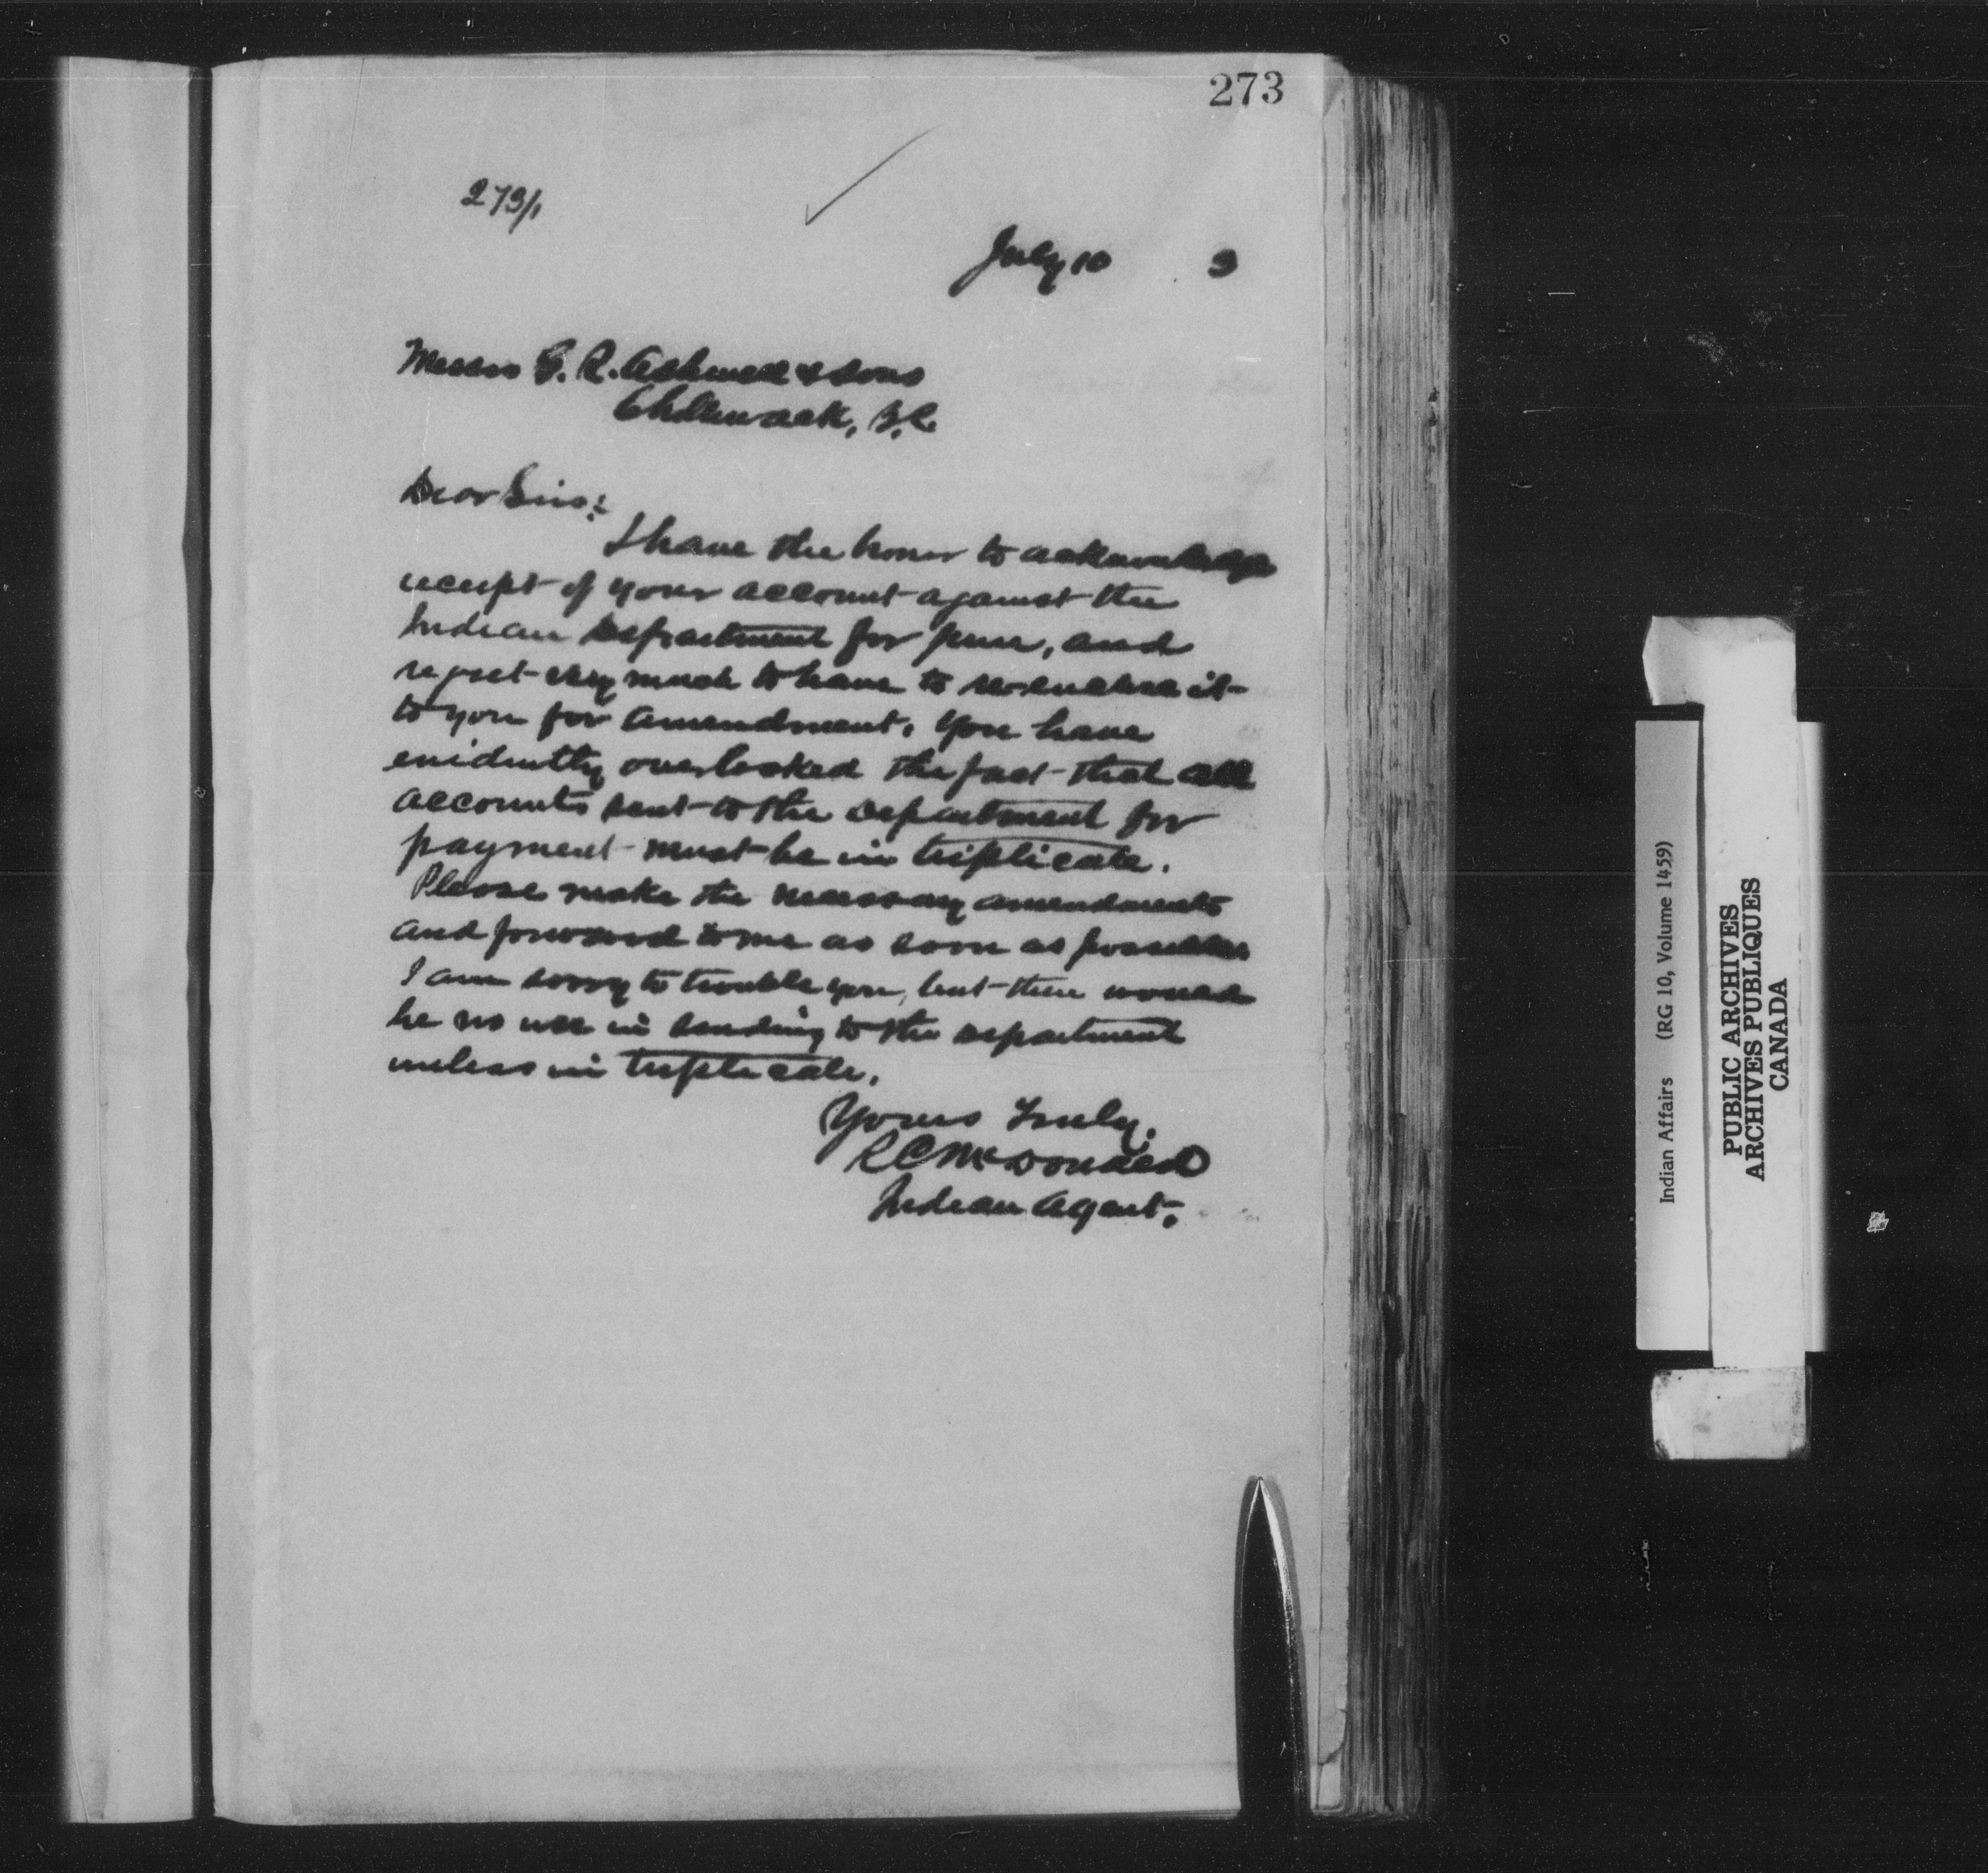 273
273/1
July 10 3
Messrs G. R. Ashwell & Sons
Chilliwack, B.C.
Dear Sirs:
I have the honor to acknowledge
receipt of your account against the
Indian Department for June, and
regret very much to have to re-enclose it
to you for amendment. You have
evidently overlooked the fact that all
accounts sent to the Department for
payment must be in triplicate.
Please make the necessary amendments
and forward to me as soon as possible
I am sorry to trouble you, but there would
be no use in sending to the Department
unless in triplicate.
Yours Truly.
R C McDonald
Indian Agent.
Indian Affairs (RG 10, Volume 1459)
PUBLIC ARCHIVES
ARCHIVES PUBLIQUES
CANADA